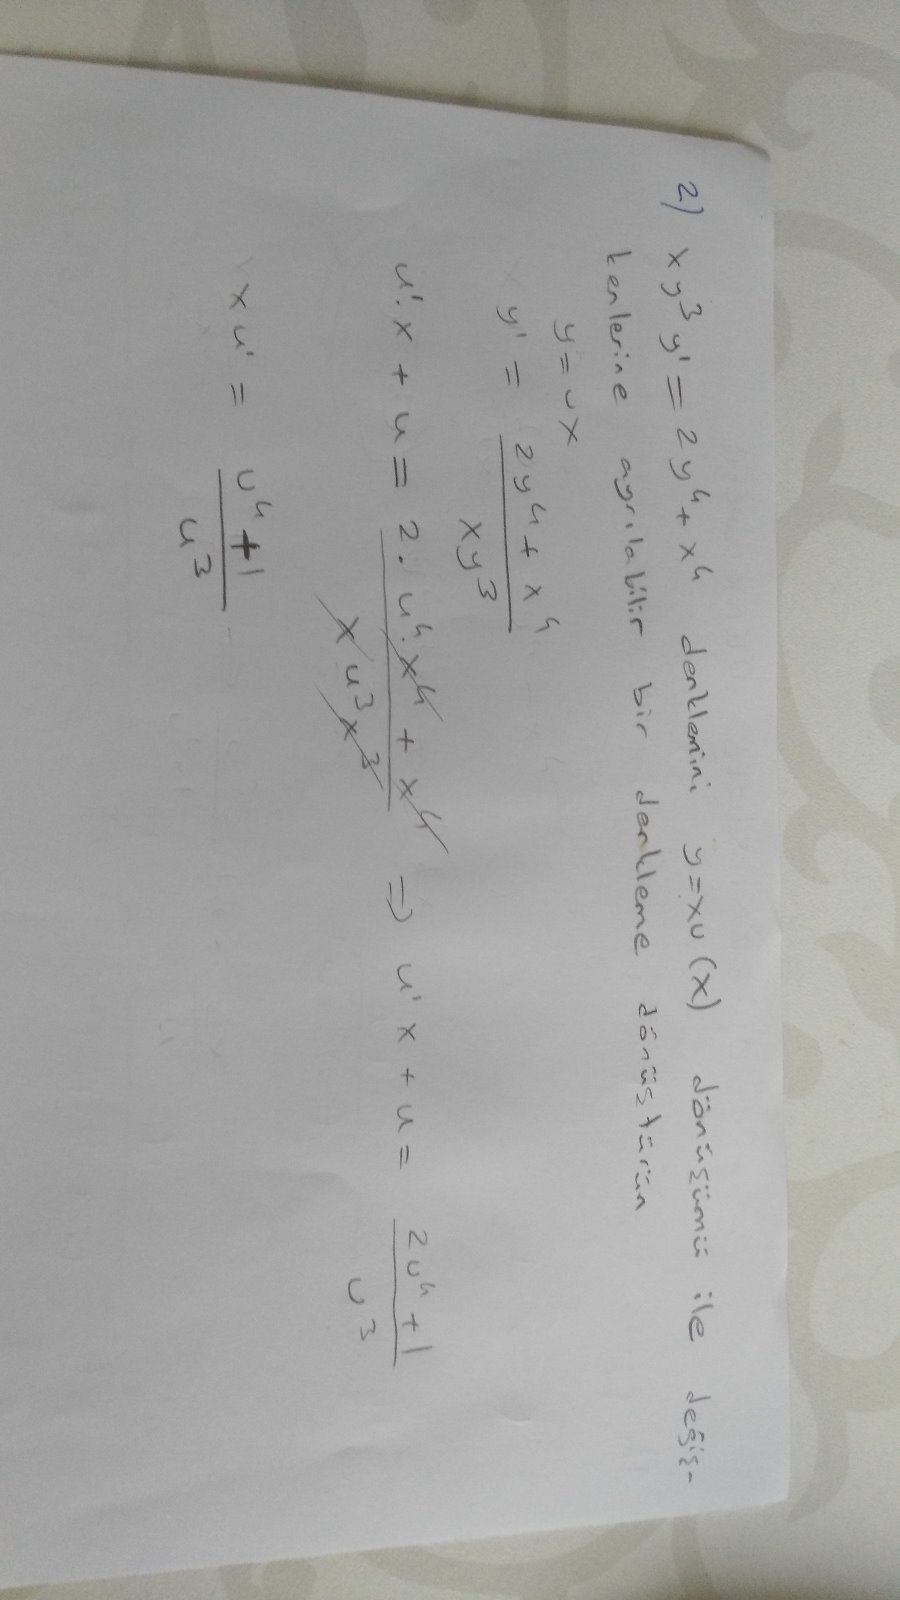 2) xy³y' = 2y⁴ + x⁴ denklemini y = xu(x) dönüşümü ile değiş-
kenlerine ayrılabilir bir denkleme dönüştürün
y = ux
y' = (2y⁴ + x⁴) / (xy³)
u'.x + u = (2.u⁴.x⁴ + x⁴) / (x u³x³) => u'x + u = (2u⁴ + 1) / u³
xu' = (u⁴ + 1) / u³